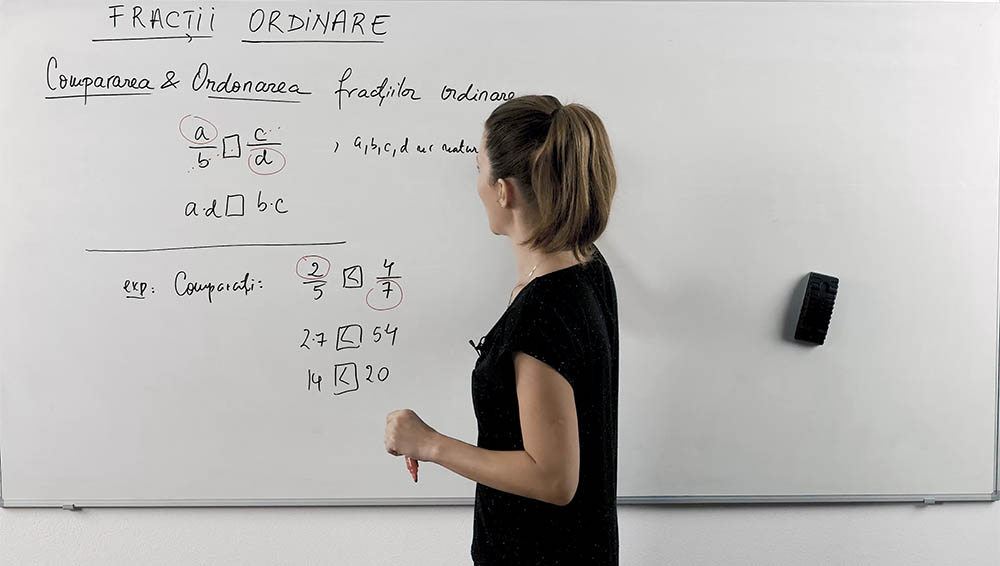 FRACȚII ORDINARE
Compararea & Ordonarea fracțiilor ordinare
a/b □ c/d , a,b,c,d nr. natur
a·d □ b·c
exp: Comparați: 2/5 < 4/7
2·7 < 54
14 < 20